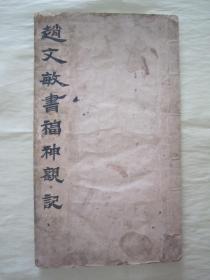 趙文敏書福神觀記